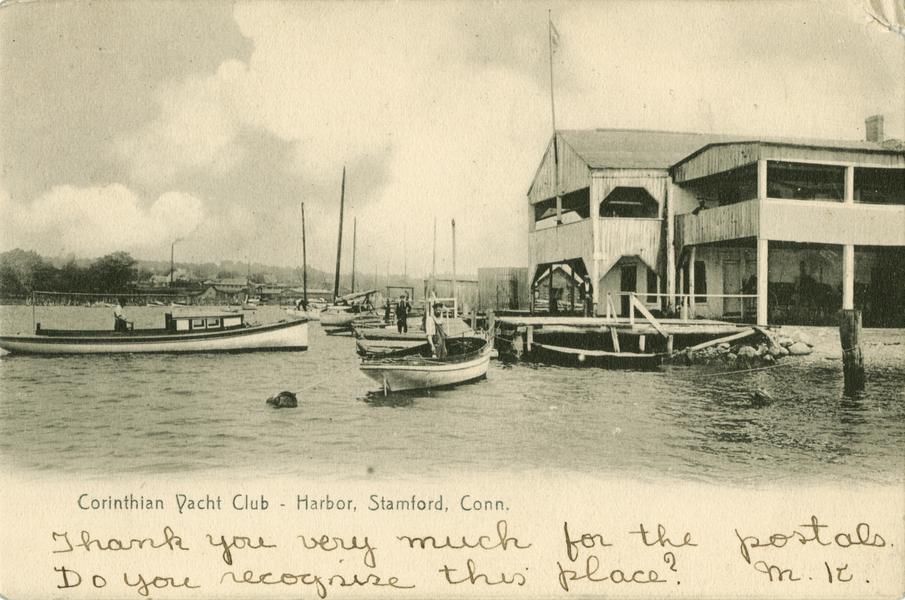 Corinthian Yacht Club - Harbor, Stamford, Conn.
Thank you very much for the postals.
Do you recognize this place? M. K.